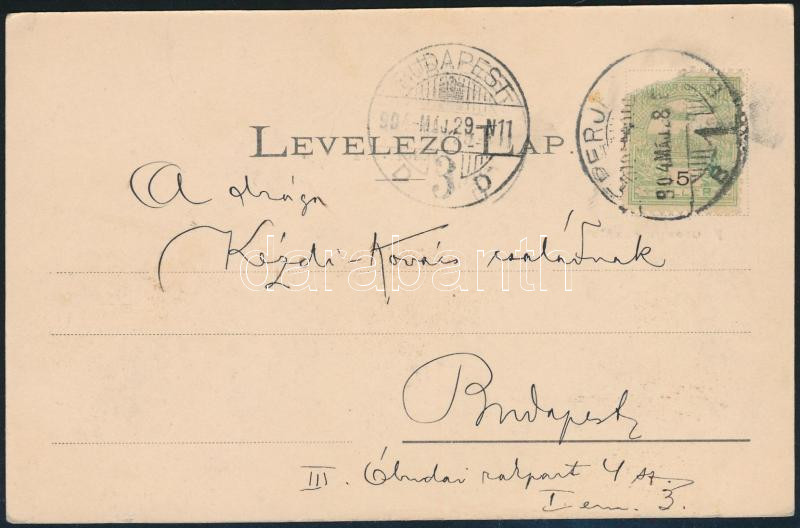 BUDAPEST
904 MÁJ. 29. N11
3
D D
EPERJ
904 MÁJ. 8
B 1
5
LEVELEZŐ LAP.
A drága
Kézdi-Kovács családnak
darabanth
Budapest
III. Óbudai rakpart 4 sz.
I em. 3.